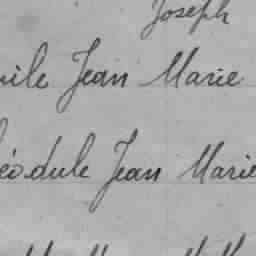 Joseph
ile Jean Marie
éodule Jean Marie